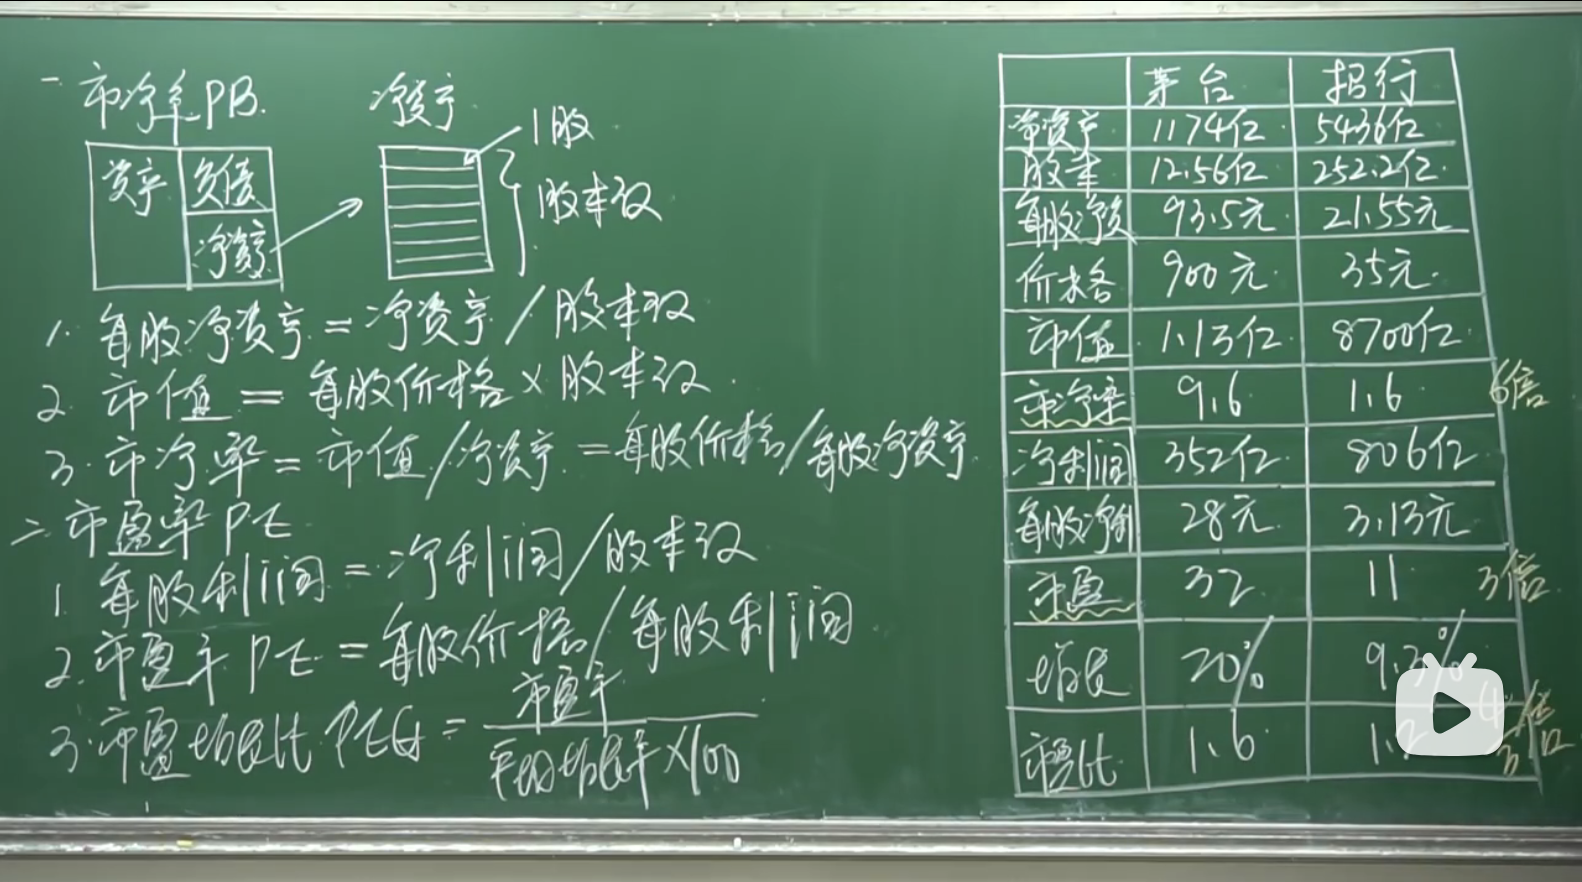 一. 市净率PB.
净资产
1股
股本数
资产
负债
净资产
1. 每股净资产 = 净资产 / 股本数
2. 市值 = 每股价格 × 股本数
3. 市净率 = 市值/净资产 = 每股价格/每股净资产
二. 市盈率 PE
1. 每股利润 = 净利润/股本数
2. 市盈率 PE = 每股价格/每股利润
3. 市盈增长比 PEG = 市盈率
平均增长率×100
茅台 招行
净资产 1174亿 5436亿
股本 12.56亿 252.2亿
每股净资 93.5元 21.55元
价格 900元 35元
市值 1.13亿 8700亿
市净率 9.6 1.6 6倍
净利润 352亿 806亿
每股净利 28元 3.13元
市盈 32 11 3倍
增长 20% 9.3%
市盈比 1.6